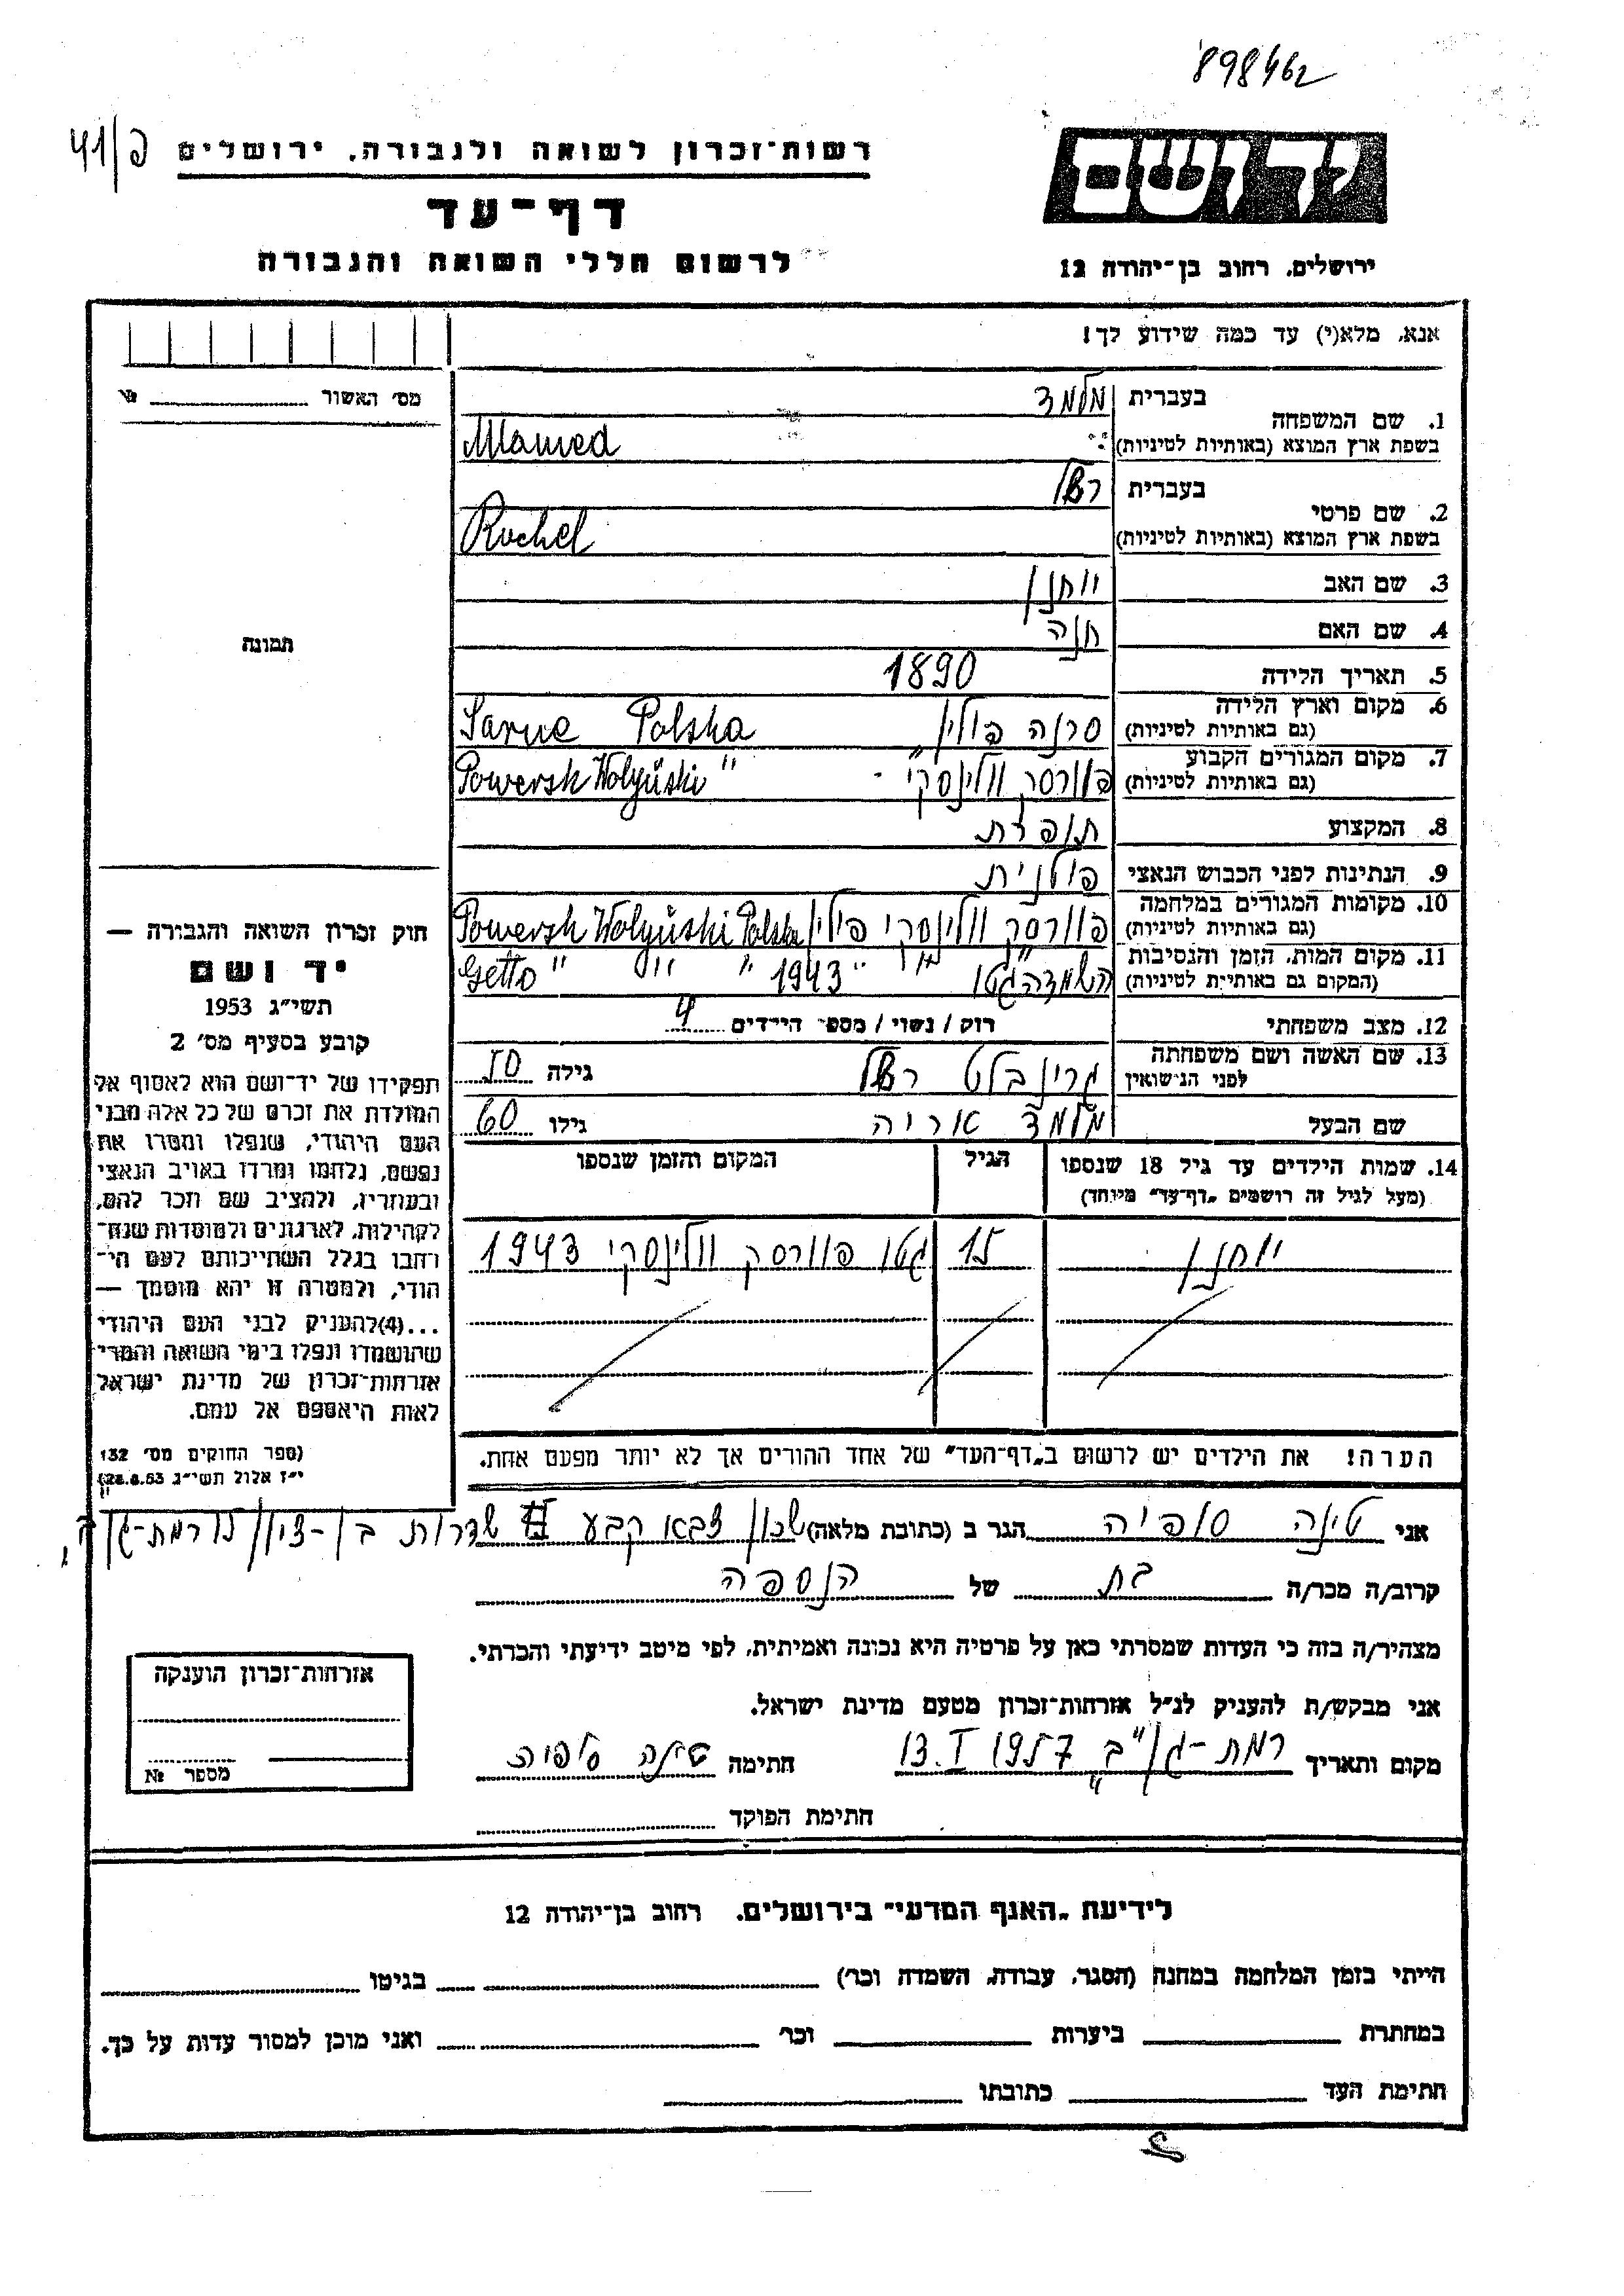 898462
פ/41
רשות־זכרון לשואה ולגבורה, ירושלים
יד ושם
דף־עד
לרשום חללי השואה והגבורה
ירושלים, רחוב בן־יהודה 12
אנא, מלא(י) עד כמה שידוע לך!
מס׳ האשור №
1. שם המשפחה
בעברית מלמד
בשפת ארץ המוצא (באותיות לטיניות) Mlamed
2. שם פרטי
בעברית רחל
בשפת ארץ המוצא (באותיות לטיניות) Ruchel
3. שם האב יוחנן
4. שם האם חנה
5. תאריך הלידה 1890
6. מקום וארץ הלידה (גם באותיות לטיניות) סרנה פולין Sarne Polska
7. מקום המגורים הקבוע (גם באותיות לטיניות) פוורסק וולינסקי " Powersk Wolyński "
8. המקצוע תופרת
9. הנתינות לפני הכבוש הנאצי פולנית
10. מקומות המגורים במלחמה (גם באותיות לטיניות) פוורסק וולינסקי פולין Powersk Wolyński Polska
11. מקום המות, הזמן והנסיבות (המקום גם באותיות לטיניות) השמדה גטו " " 1943 Getto " " "
12. מצב משפחתי רוק / נשוי / מספר הילדים 4
13. שם האשה ושם משפחתה לפני הנשואין גרינבלט רחל גילה 50
שם הבעל מלמד אריה גילו 60
14. שמות הילדים עד גיל 18 שנספו הגיל המקום והזמן שנספו
(מעל לגיל זה רושמים „דף־עד” מיוחד)
יוחנן 15 גטו פוורסק וולינסקי 1943
הערה! את הילדים יש לרשום ב„דף־העד” של אחד ההורים אך לא יותר מפעם אחת.
תמונה
חוק זכרון השואה והגבורה —
יד ושם
תשי״ג 1953
קובע בסעיף מס׳ 2
תפקידו של יד־ושם הוא לאסוף אל
המולדת את זכרם של כל אלה מבני
העם היהודי, שנפלו ומסרו את
נפשם, נלחמו ומרדו באויב הנאצי
ובעוזריו, ולהציב שם וזכר להם,
לקהילות, לארגונים ולמוסדות שנח־
רחבו בגלל השתייכותם לעם הי־
הודי, ולמטרה זו יהא מוסמך —
...(4)להעניק לבני העם היהודי
שהושמדו ונפלו בימי השואה והמרי
אזרחות־זכרון של מדינת ישראל
לאות היאספם אל עמם.
(ספר החוקים מס׳ 132
י״ז אלול תשי״ג 28.8.53)
אני טינה סופיה הגר ב (כתובת מלאה) שכון צבא קבע שדרות בן-ציון רמת-גן ב,
קרוב/ה מכר/ה בת של הנספה
מצהיר/ה בזה כי העדות שמסרתי כאן על פרטיה היא נכונה ואמיתית, לפי מיטב ידיעתי והכרתי.
אני מבקש/ת להעניק לנ״ל אזרחות־זכרון מטעם מדינת ישראל.
מקום ותאריך רמת-גן "ב" 13.I 1957 חתימה טינה סופיה
חתימת הפוקד
אזרחות־זכרון הוענקה
מספר №
לידיעת „האגף המדעי” בירושלים, רחוב בן־יהודה 12
הייתי בזמן המלחמה במחנה (הסגר, עבודה, השמדה וכו׳) בגיטו
במחתרת ביערות וכו׳ ואני מוכן למסור עדות על כך.
חתימת העד כתובתו